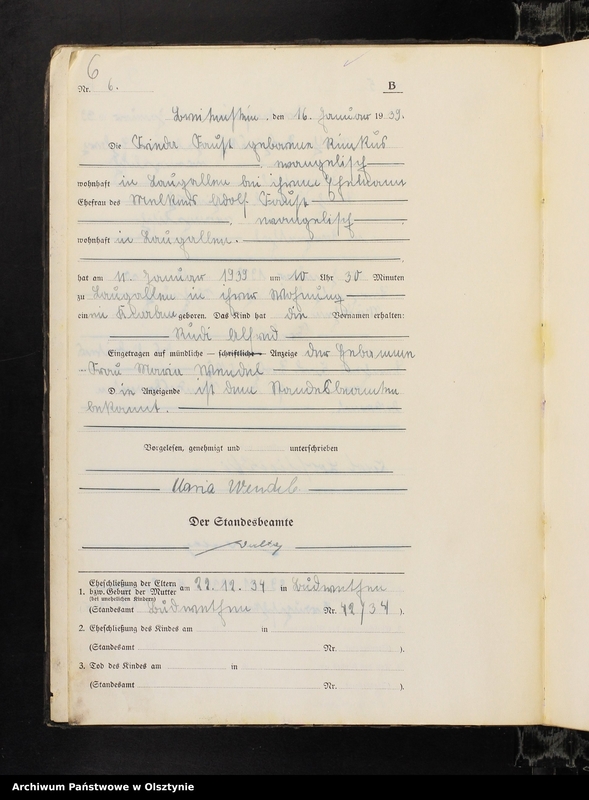 6
Nr. 6. B
Breitenstein, den 16. Januar 1939.
Die Frieda Faust geborene Rimkus
evangelisch
wohnhaft in Laugallen bei ihrem Ehemann
Ehefrau des Melkers Adolf Faust
, evangelisch
wohnhaft in Laugallen.
hat am 11. Januar 1939 um 10 Uhr 30 Minuten
zu Laugallen in ihrer Wohnung
einen Knaben geboren. Das Kind hat die Vornamen erhalten:
Rudi Alfred
Eingetragen auf mündliche — schriftliche — Anzeige der Hebamme
Frau Maria Wendel
Die Anzeigende ist dem Standesbeamten
bekannt.
Vorgelesen, genehmigt und unterschrieben
Maria Wendel
Der Standesbeamte
Eheschließung der Eltern
1. bzw. Geburt der Mutter am 22.12.34 in Budwethen
(bei unehelichen Kindern)
(Standesamt Budwethen Nr. 42/34 ).
2. Eheschließung des Kindes am in
(Standesamt Nr. ).
3. Tod des Kindes am in
(Standesamt Nr. ).
Archiwum Państwowe w Olsztynie